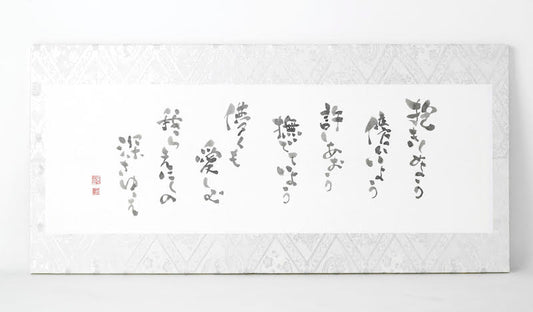 抱きしめよう
傍にいよう
許しあおう
撫でていよう
儚くも
愛しむ
我らえにしの
深きゆえ